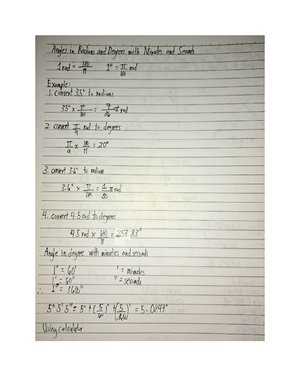 Angles in Radians and Degrees with Minutes and Seconds
1 rad = 180/π 1° = π/180 rad
Example:
1. convert 35° to radians
35° x π/180 = 7/36 π rad
2. convert π/9 rad to degrees
π/9 x 180/π = 20°
3. convert 3.6° to radian
3.6° x π/180 = 1/50 π rad
4. convert 4.5 rad to degrees
4.5 rad x 180/π = 257.83°
Angle in degree with minutes and seconds
1° = 60' ' = minutes
1' = 60" " = seconds
∴ 1° = 3600"
5° 5' 5" = 5 + (5/60)° + (5/3600)° = 5.0847°
Using calculator